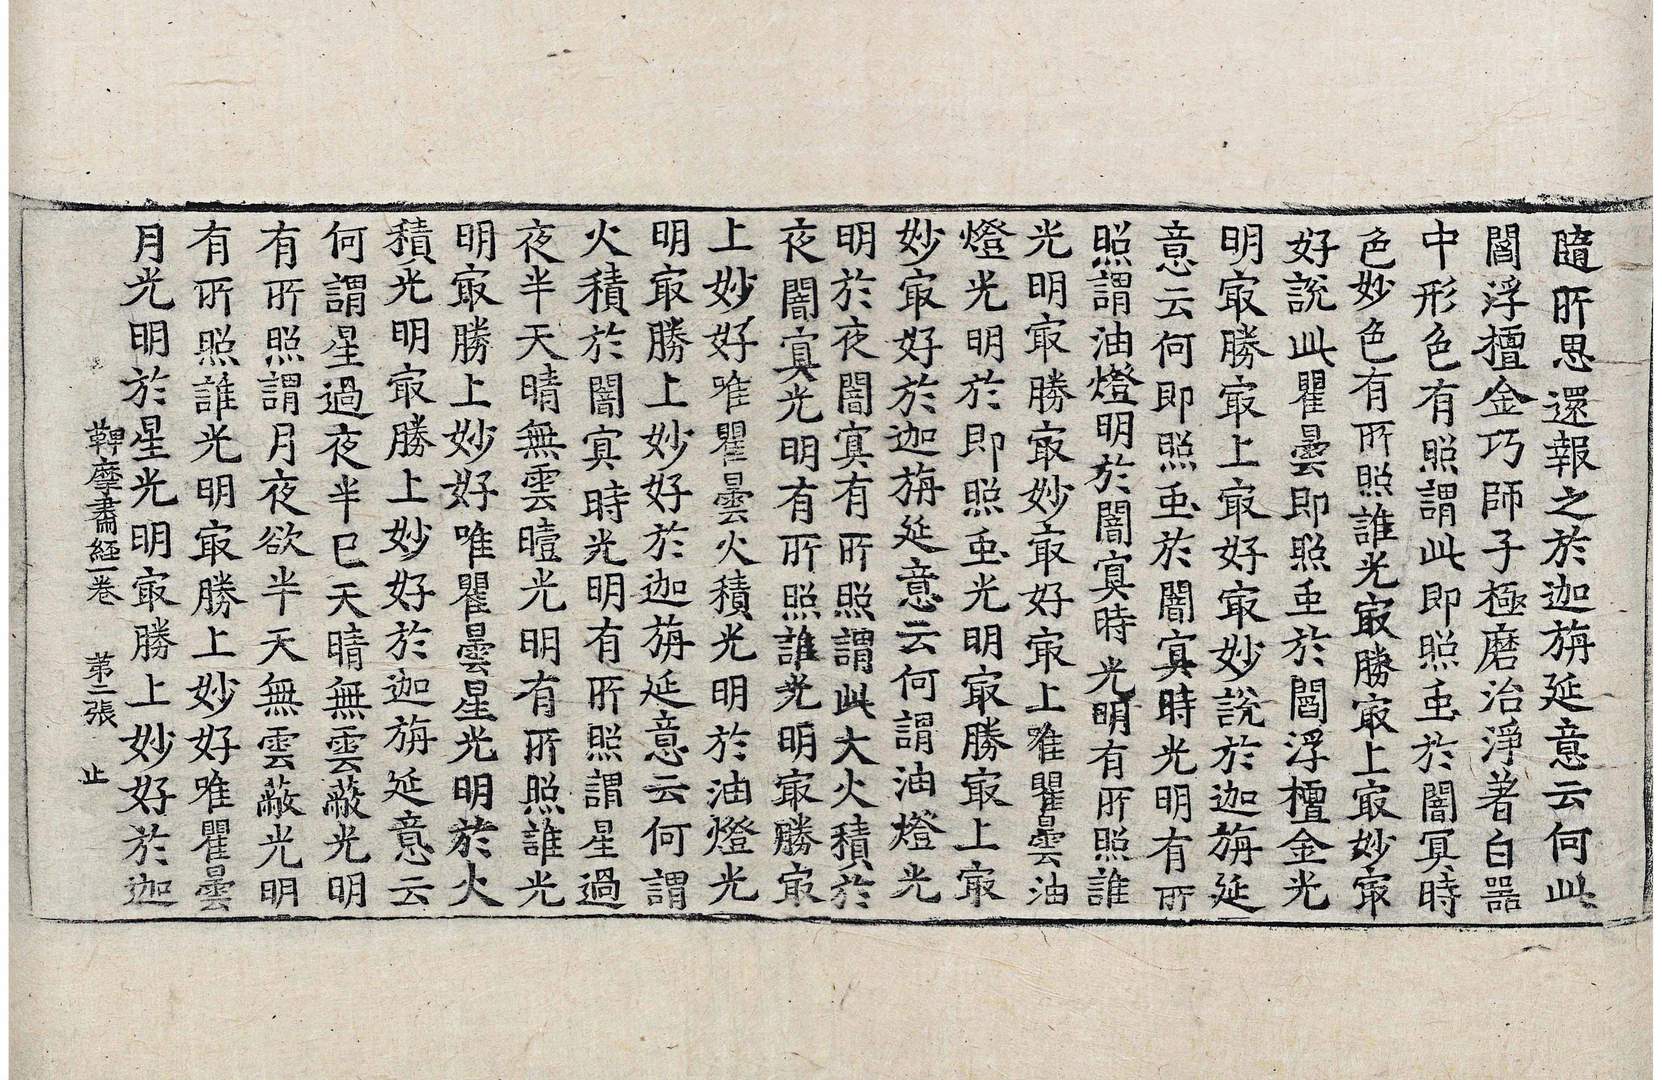 隨所思還報之於迦旃延意云何此
閻浮檀金巧師子極磨治淨著白器
中形色有照謂此即照𤣥於闇冥時
色妙色有所照誰光㝡勝㝡上㝡妙㝡
好說此瞿曇即照𤣥於閻浮檀金光
明㝡勝㝡上㝡好㝡妙說於迦旃延
意云何即照𤣥於闇冥時光明有所
照謂油燈明於闇冥時光明有所照誰
光明㝡勝㝡妙㝡好㝡上唯瞿曇油
燈光明於即照𤣥光明㝡勝㝡上㝡
妙㝡好於迦旃延意云何謂油燈光
明於夜闇冥有所照謂此大火積於
夜闇冥光明有所照誰光明㝡勝㝡
上妙好唯瞿曇火積光明於油燈光
明㝡勝上妙好於迦旃延意云何謂
火積於闇冥時光明有所照謂星過
夜半天晴無雲曀光明有所照誰光
明㝡勝上妙好唯瞿曇星光明於火
積光明㝡勝上妙好於迦旃延意云
何謂星過夜半已天晴無雲蔽光明
有所照謂月夜欲半天無雲蔽光明
有所照誰光明㝡勝上妙好唯瞿曇
月光明於星光明㝡勝上妙好於迦
鞞摩肅經一卷 第二張 止